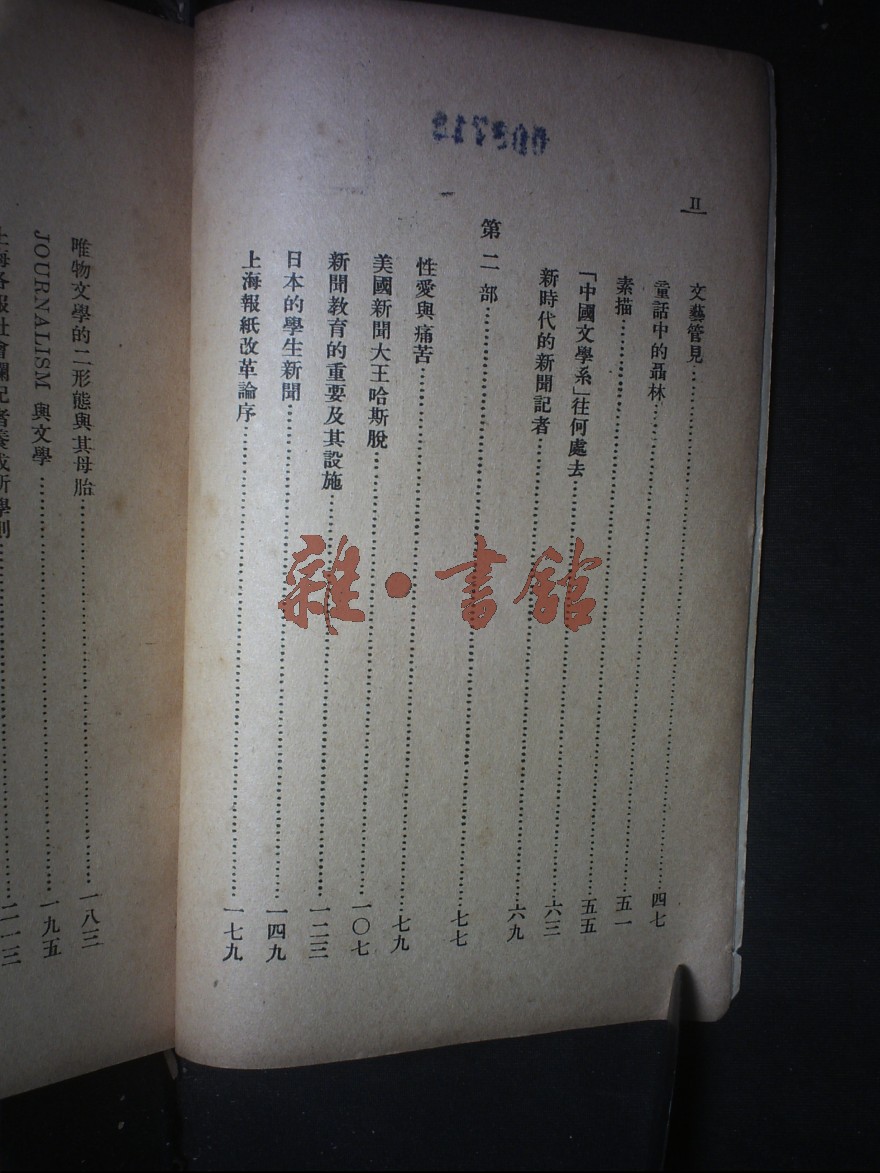 II
文藝管見……四七
童話中的聶林……五一
素描……五五
「中國文學系」往何處去……六三
新時代的新聞記者……六九
第二部……七七
性愛與痛苦……七九
美國新聞大王哈斯脫……一〇七
新聞教育的重要及其設施……一二三
日本的學生新聞……一四九
上海報紙改革論序……一七九
唯物文學的二形態與其母胎……一八三
JOURNALISM 與文學……一九五
上海各報社會欄記者養成所學則……二一三
雜·書館